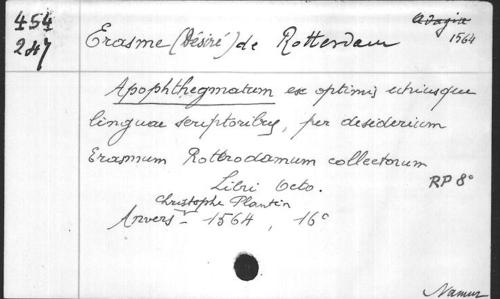 454
247
Adagia
1564
Erasme (Désiré) de Rotterdam
Apophthegmatum ex optimis utriusque
linguae scriptoribus, per desiderium
Erasmum Rottrodamum collectorum
Libri Octo.
RP 8°
Christophe Plantin
Anvers - 1564, 16°
Namur